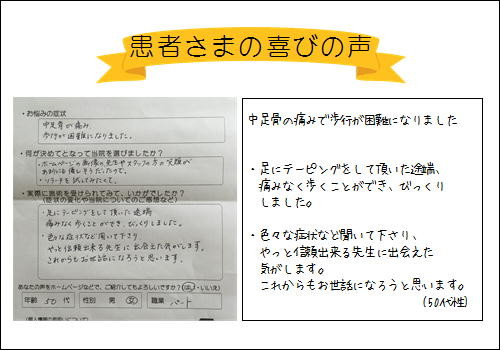 患者さまの喜びの声
・お悩みの症状
中足骨が痛み
歩行が困難になりました。
・何が決めてとなって当院を選びましたか？
・ホームページの画像の先生やスタッフの方の笑顔が
・リラードを試してみたくて。
・実際に施術を受けられてみて、いかがでしたか？
(症状の変化や当院についてのご感想など)
・足にテーピングをして頂いた途端
痛みなく歩くことができ、びっくりしました。
・色々な症状など聞いて下さり、
やっと信頼出来る先生に出会えた気がします。
これからもお世話になろうと思います。
あなたの声をホームページなどで、ご紹介してもよろしいですか？(はい・いいえ)
年齢 50 代 性別 男 女 職業 パート
中足骨の痛みで歩行が困難になりました
・足にテーピングをして頂いた途端、
痛みなく歩くことができ、びっくり
しました。
・色々な症状など聞いて下さり、
やっと信頼出来る先生に出会えた
気がします。
これからもお世話になろうと思います。
(50代女性)